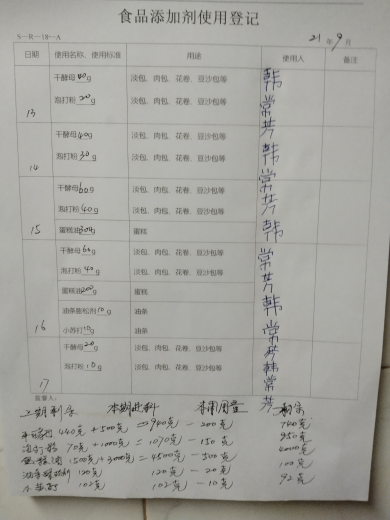 食品添加剂使用登记
S-R-18-A
21年9月
日期 使用名称、使用标准 用途 使用人 备注
干酵母40g 淡包、肉包、花卷、豆沙包等 韩常芳
13 泡打粉20g 淡包、肉包、花卷、豆沙包等
干酵母40g 淡包、肉包、花卷、豆沙包等 韩常芳
14 泡打粉30g 淡包、肉包、花卷、豆沙包等
干酵母60g 淡包、肉包、花卷、豆沙包等 韩常芳
泡打粉40g 淡包、肉包、花卷、豆沙包等
15 蛋糕油300g 蛋糕
干酵母60g 淡包、肉包、花卷、豆沙包等 韩常芳
泡打粉40g 淡包、肉包、花卷、豆沙包等
蛋糕油200g 蛋糕
油条膨松剂10g 油条
16 小苏打10g 油条
干酵母20g 淡包、肉包、花卷、豆沙包等 韩常芳
17 泡打粉10g 淡包、肉包、花卷、豆沙包等
上期剩余 本期进料 本周用量
干酵母 440克+500克=940克-200克 740克
泡打粉 70克+1000克=1070克-150克 950克
蛋糕油 1500克+3000克=4500克-500克 4000克
120克 120克-20克 100克
小苏打 102克 102克-10克 92克